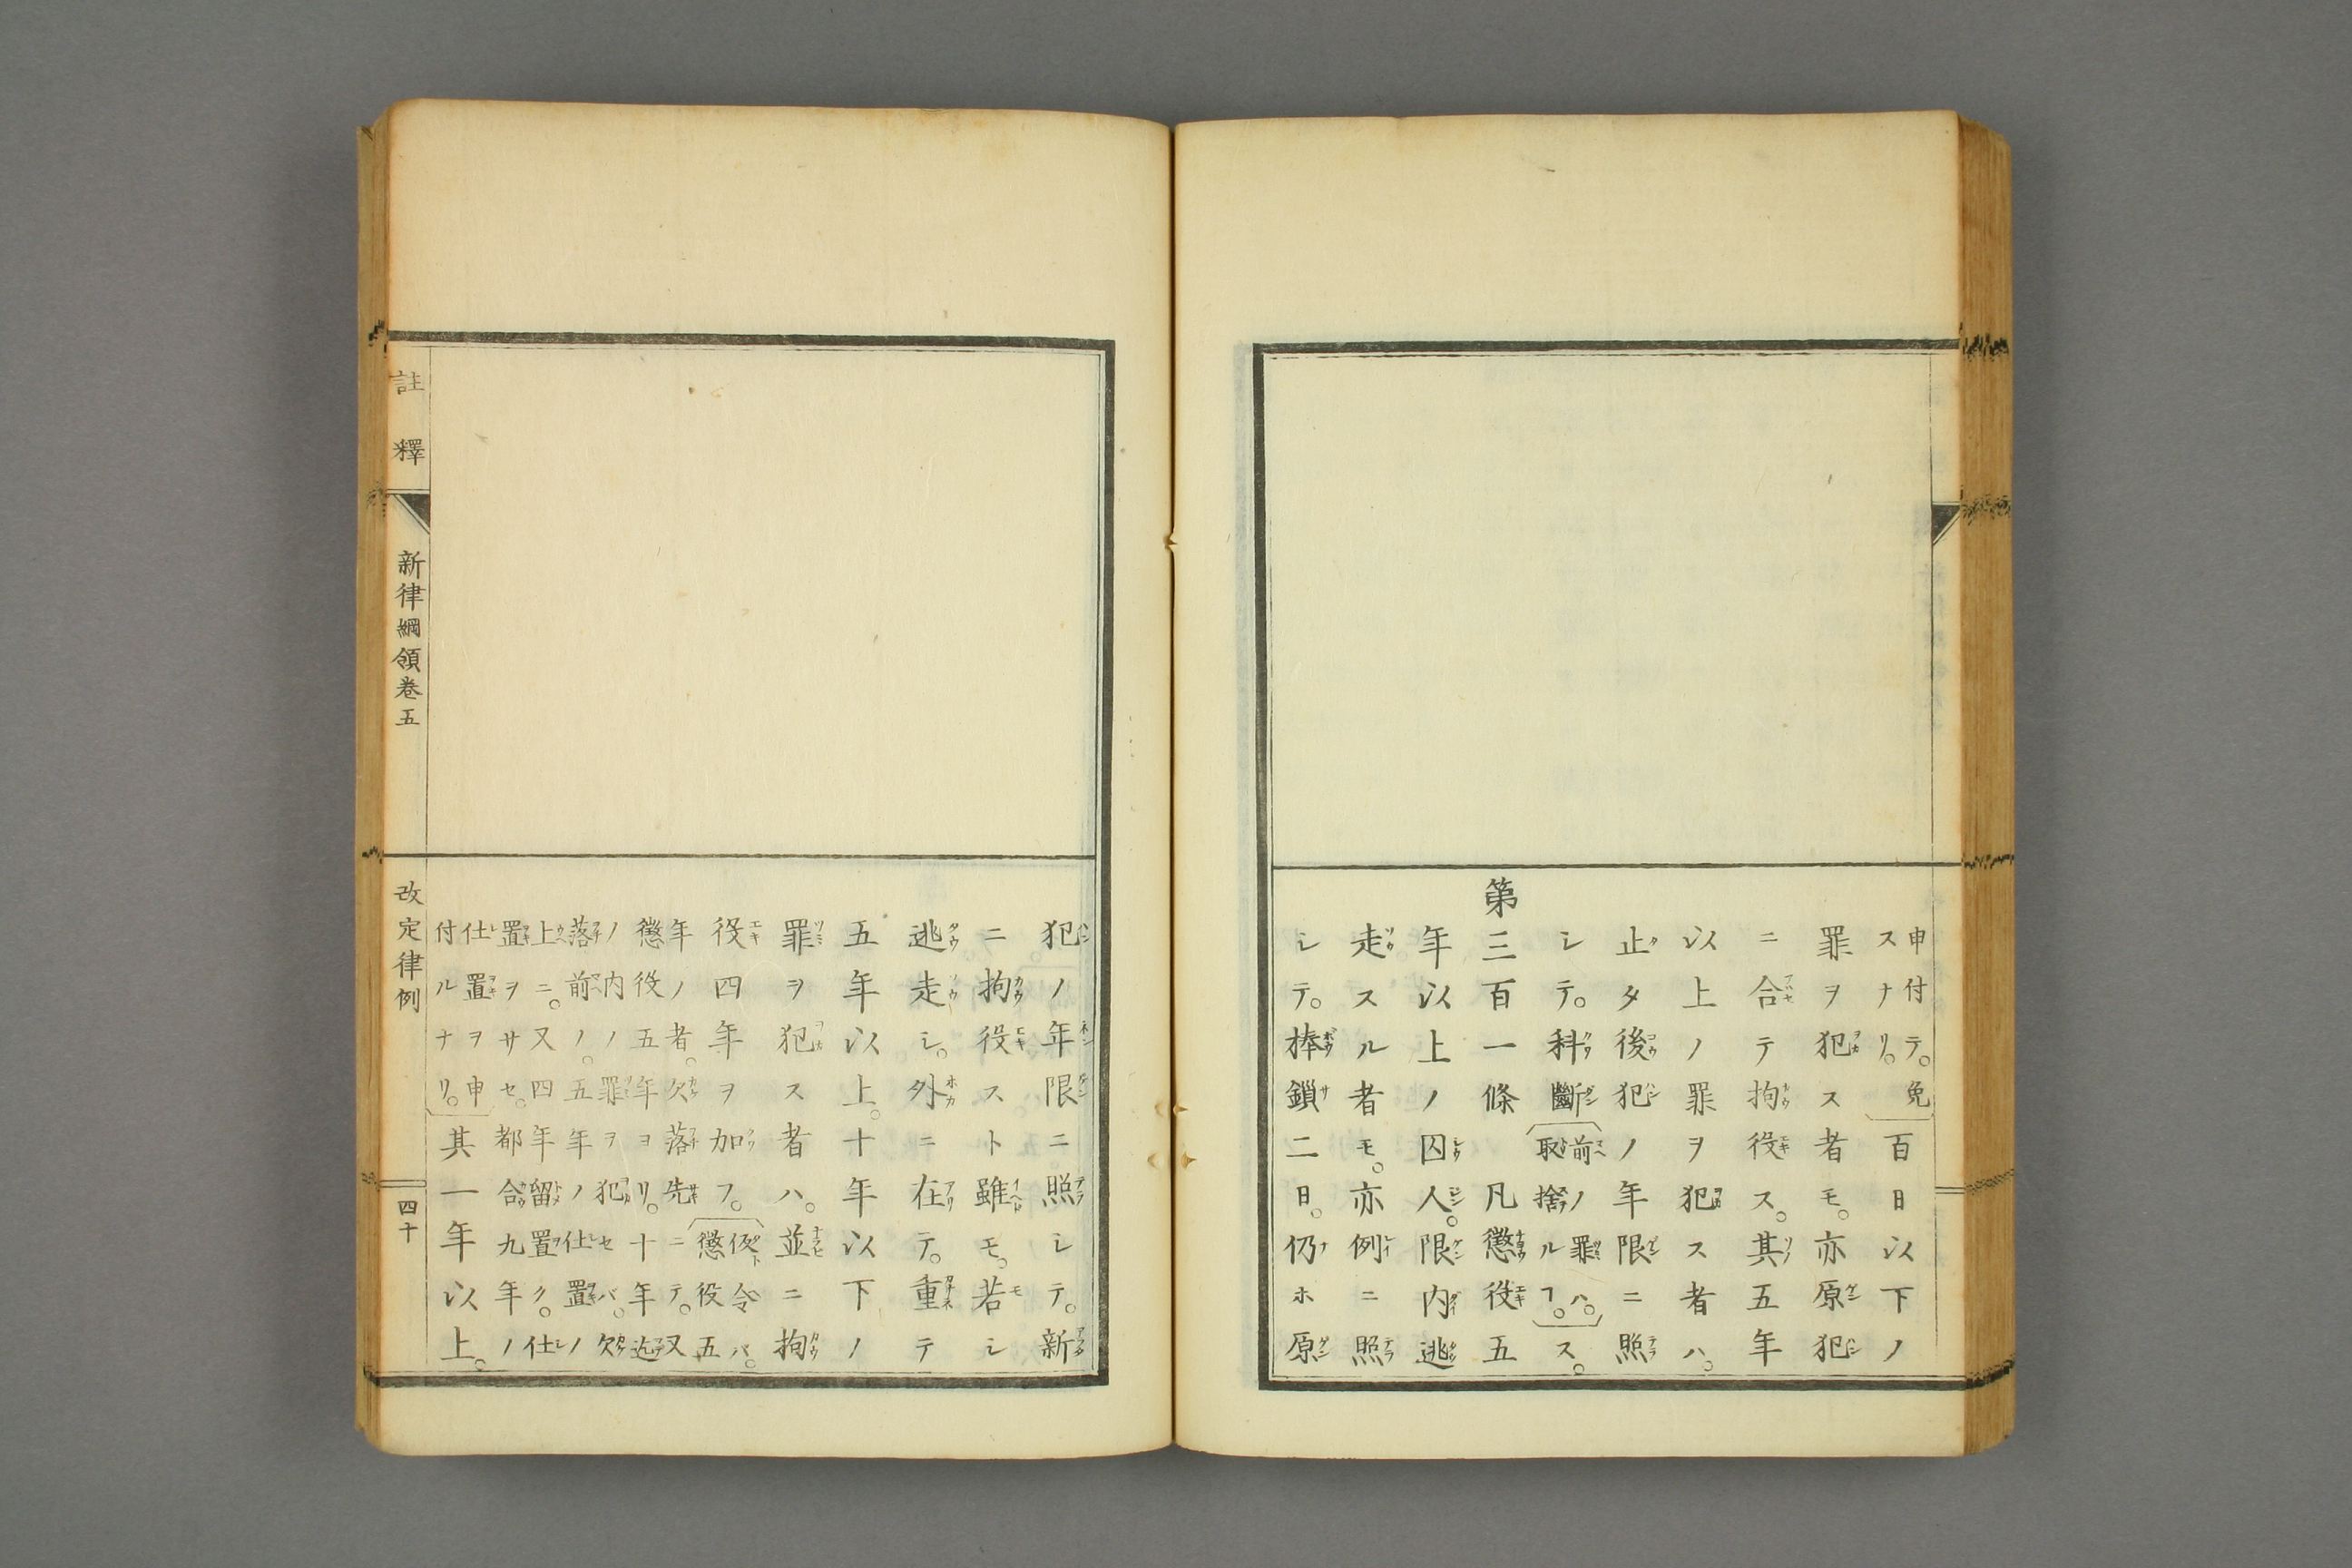 申付テ。免
スナリ。
百日以下ノ
罪ヲ犯ス者モ。亦原犯
ニ合テ拘役ス。其五年
以上ノ罪ヲ犯ス者ハ。
止タ後犯ノ年限ニ照
シテ。科斷
前ノ罪ハ。
取捨ルフ。
ス。
第三百一條凡懲役五
年以上ノ囚人。限内逃
走スル者モ。亦例ニ照
シテ。棒鎖二日。仍ホ原
犯ノ年限ニ照シテ。新
ニ拘役スト雖モ。若シ
逃走シ。外ニ在テ。重テ
五年以上。十年以下ノ
罪ヲ犯ス者ハ。並ニ拘
役四年ヲ加フ。
仮令バ。
懲役五
年ノ者。欠落先ニテ。又
懲役五年ヨリ。十年迄
ノ内ノ罪ヲ犯セバ。欠
落前ノ。五年ノ仕置ノ
上ニ。又四年留置ク。仕
置ヲサセ。都合九年ノ
仕置ヲ申
付ルナリ。
其一年以上。
註釋
新律綱領巻五
改定律例
四十